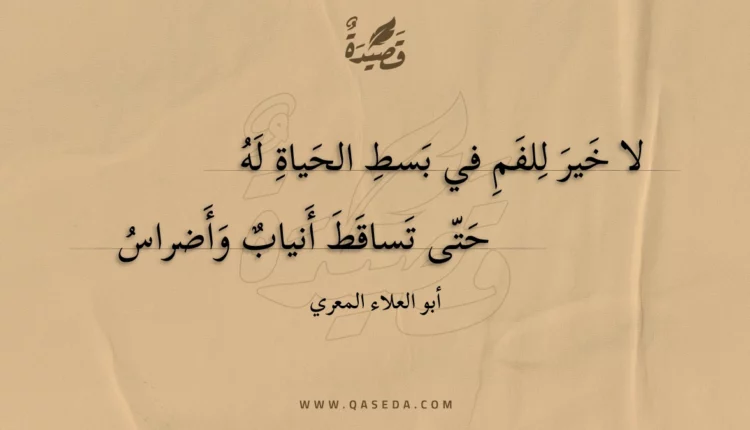 قَصِيدَةٌ
لا خَيرَ لِلفَمِ في بَسطِ الحَياةِ لَهُ
حَتّى تَساقَطَ أَنيابٌ وَأَضراسُ
أبو العلاء المعري
WWW.QASEDA.COM